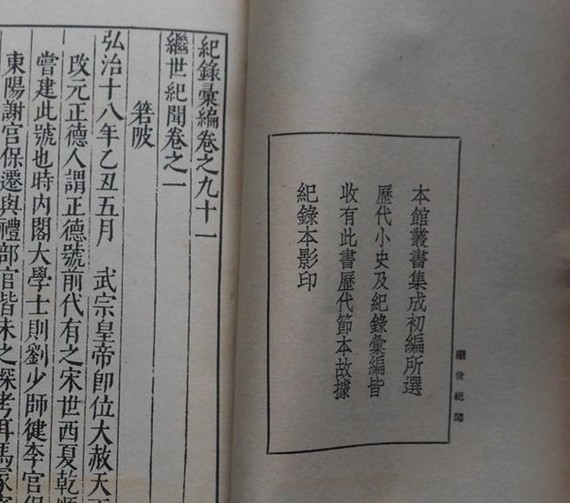 繼世紀聞
本館叢書集成初編所選
歷代小史及紀錄彙編皆
收有此書歷代節本故據
紀錄本影印
紀錄彙編卷之九十一
繼世紀聞卷之一
箬陂
弘治十八年乙丑五月 武宗皇帝卽位大赦天
改元正德人謂正德號前代有之宋世西夏乾順
嘗建此號也時内閣大學士則劉少師健李官保
東陽謝官保遷與禮部官皆未之深考耳馬冢